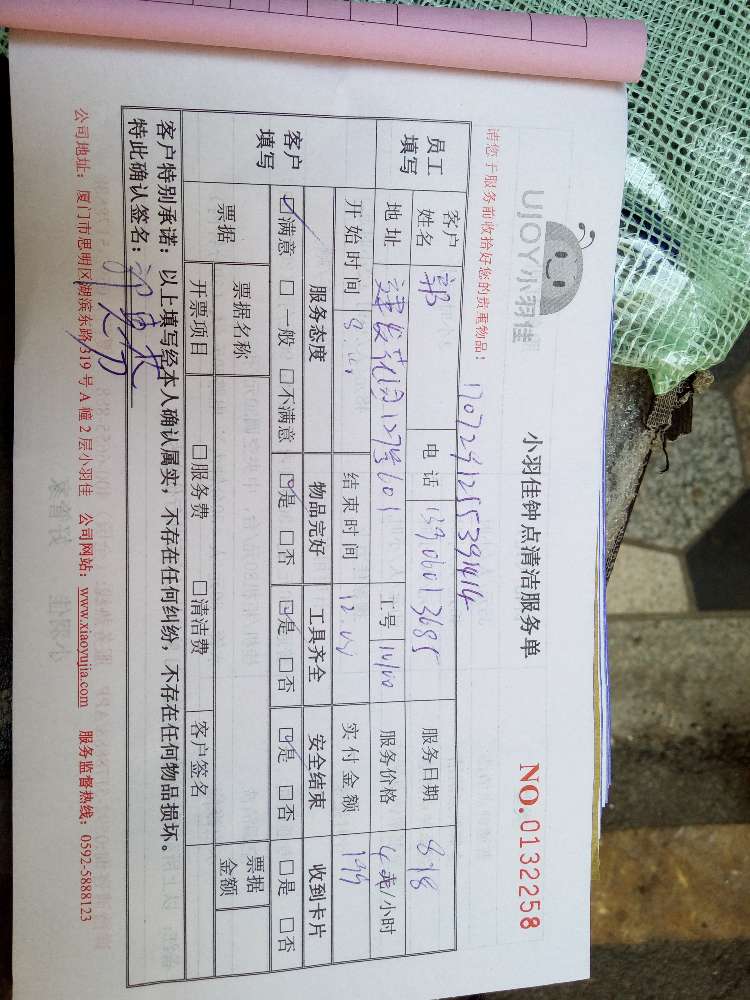 UJOY小羽佳
小羽佳钟点清洁服务单
NO.0132258
请您于服务前收拾好您的贵重物品!
1707241255391414
员工填写 客户姓名 郭 电话 13906013685 服务日期 8.18
地址 建发花园127号601 工号 服务价格 /小时
开始时间 结束时间 实付金额
客户填写 服务态度 物品完好 工具齐全 安全结束 收到卡片
☑满意 □一般 □不满意 ☑是 □否 ☑是 □否 ☑是 □否 □是 □否
票据 票据名称 票据金额
开票项目 □服务费 □清洁费 客户签名
客户特别承诺:以上填写经本人确认属实,不存在任何纠纷,不存在任何物品损坏。
特此确认签名:
公司地址:厦门市思明区湖滨东路319号A幢2层小羽佳 公司网站:www.xiaoyujia.com 服务监督热线:0592-5888123